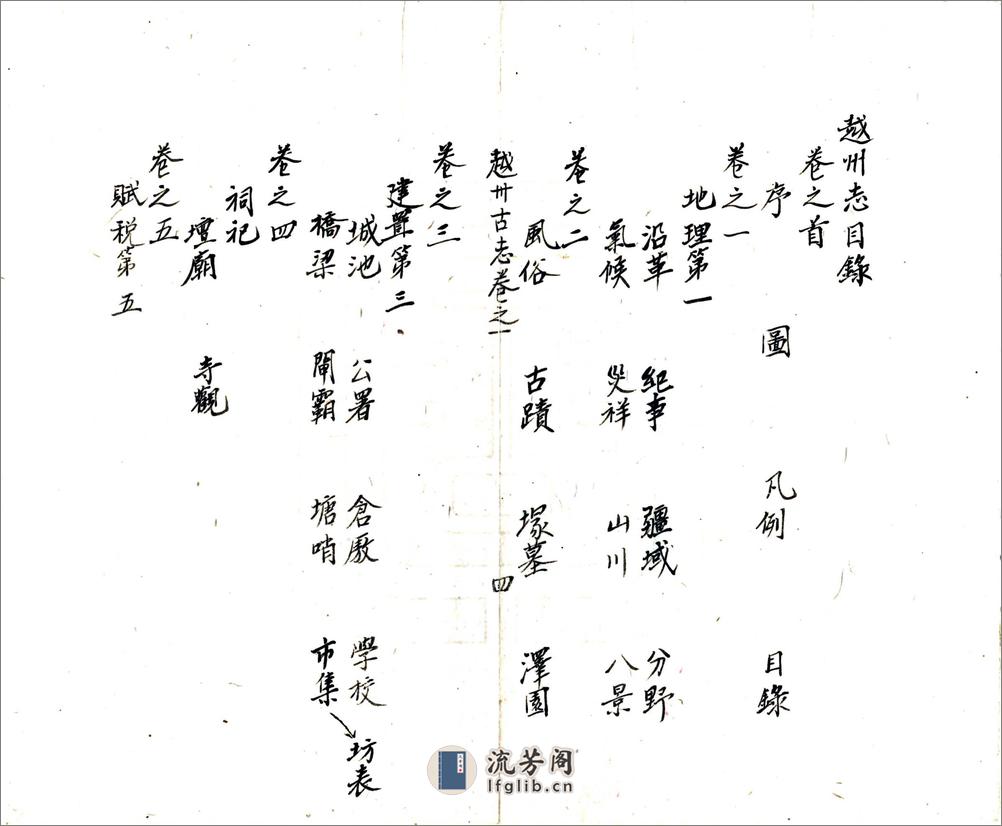 越州志目錄
卷之首
序 圖 凡例 目錄
卷之一
地理第一
沿革 紀事 疆域 分野
氣候 災祥 山川 八景
卷之二
風俗 古蹟 塚墓 澤園
越州古志卷之一 四
卷之三
建置第三
城池 公署 倉廒 學校 坊表
橋梁 閘霸 塘哨 市集
卷之四
祠祀
壇廟 寺觀
卷之五
賦税第五
流芳阁
lfglib.cn